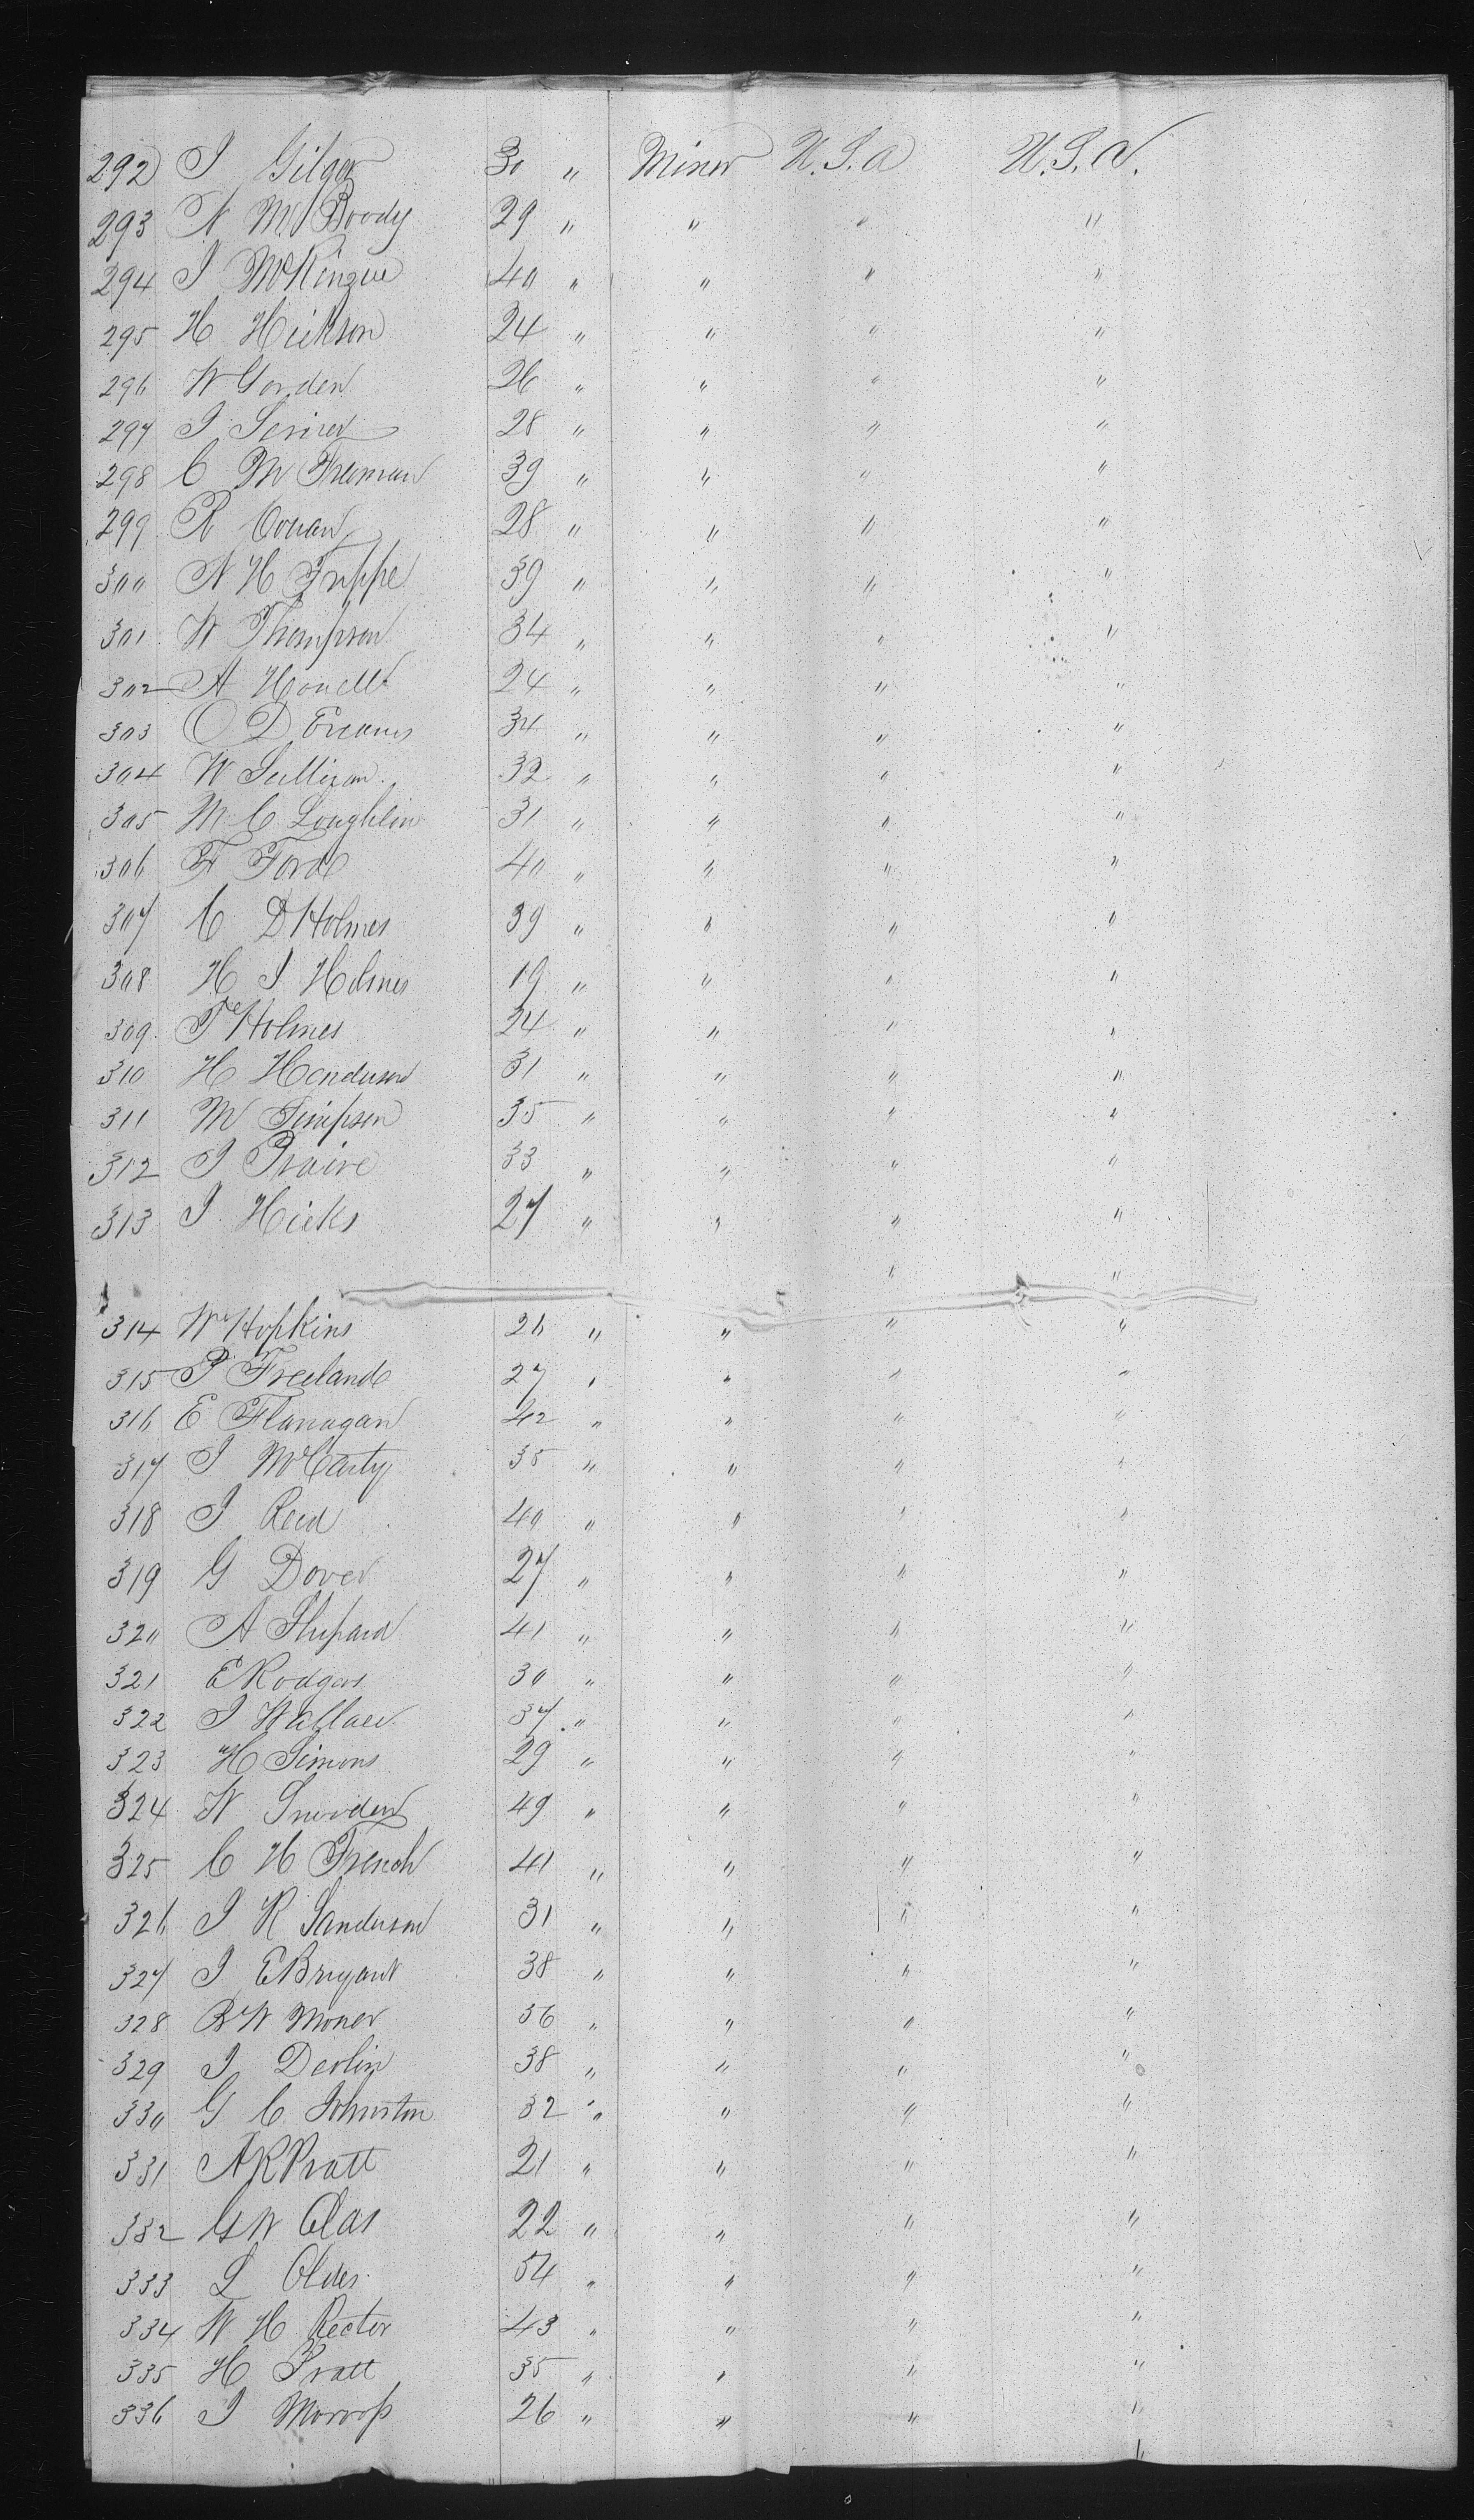 292 J Gilger 30 " Miner U.S.A U.S.A.
293 N Mc Boody 29 " " " "
294 J McKinzue 40 " " " "
295 H Hickson 24 " " " "
296 W Gorden 26 " " " "
297 J 28 " " " "
298 C M Freeman 39 " " " "
299 R Couan 28 " " " "
300 N H Trippe 39 " " " "
301 W Thompson 34 " " " "
302 A Howell 24 " " " "
303 O D 34 " " " "
304 W Sullivan 32 " " " "
305 M C Loughlin 31 " " " "
306 F Ford 40 " " " "
307 C D Holmes 39 " " " "
308 H J Holmes 19 " " " "
309 T Holmes 24 " " " "
310 H Henderson 31 " " " "
311 M Simpson 35 " " " "
312 J Praire 33 " " " "
313 J Hicks 27 " " " "
" "
314 Wm Hopkins 26 " " " "
315 P Freeland 27 " " " "
316 E Flanagan 42 " " " "
317 J McCarty 35 " " " "
318 J Reed 40 " " " "
319 G Dover 27 " " " "
320 A Shepard 41 " " " "
321 E Rodgers 30 " " " "
322 J Wallace 37 " " " "
323 H Simons 29 " " " "
324 W Snowden 49 " " " "
325 C H French 41 " " " "
326 J R Sanderson 31 " " " "
327 J E Bryant 38 " " " "
328 B W Moner 36 " " " "
329 J Devlin 38 " " " "
330 G C Johnston 32 " " " "
331 A R Pratt 21 " " " "
332 G W 22 " " " "
333 L Older 54 " " " "
334 W H Rector 43 " " " "
335 H Pratt 35 " " " "
336 J 26 " " " "
"